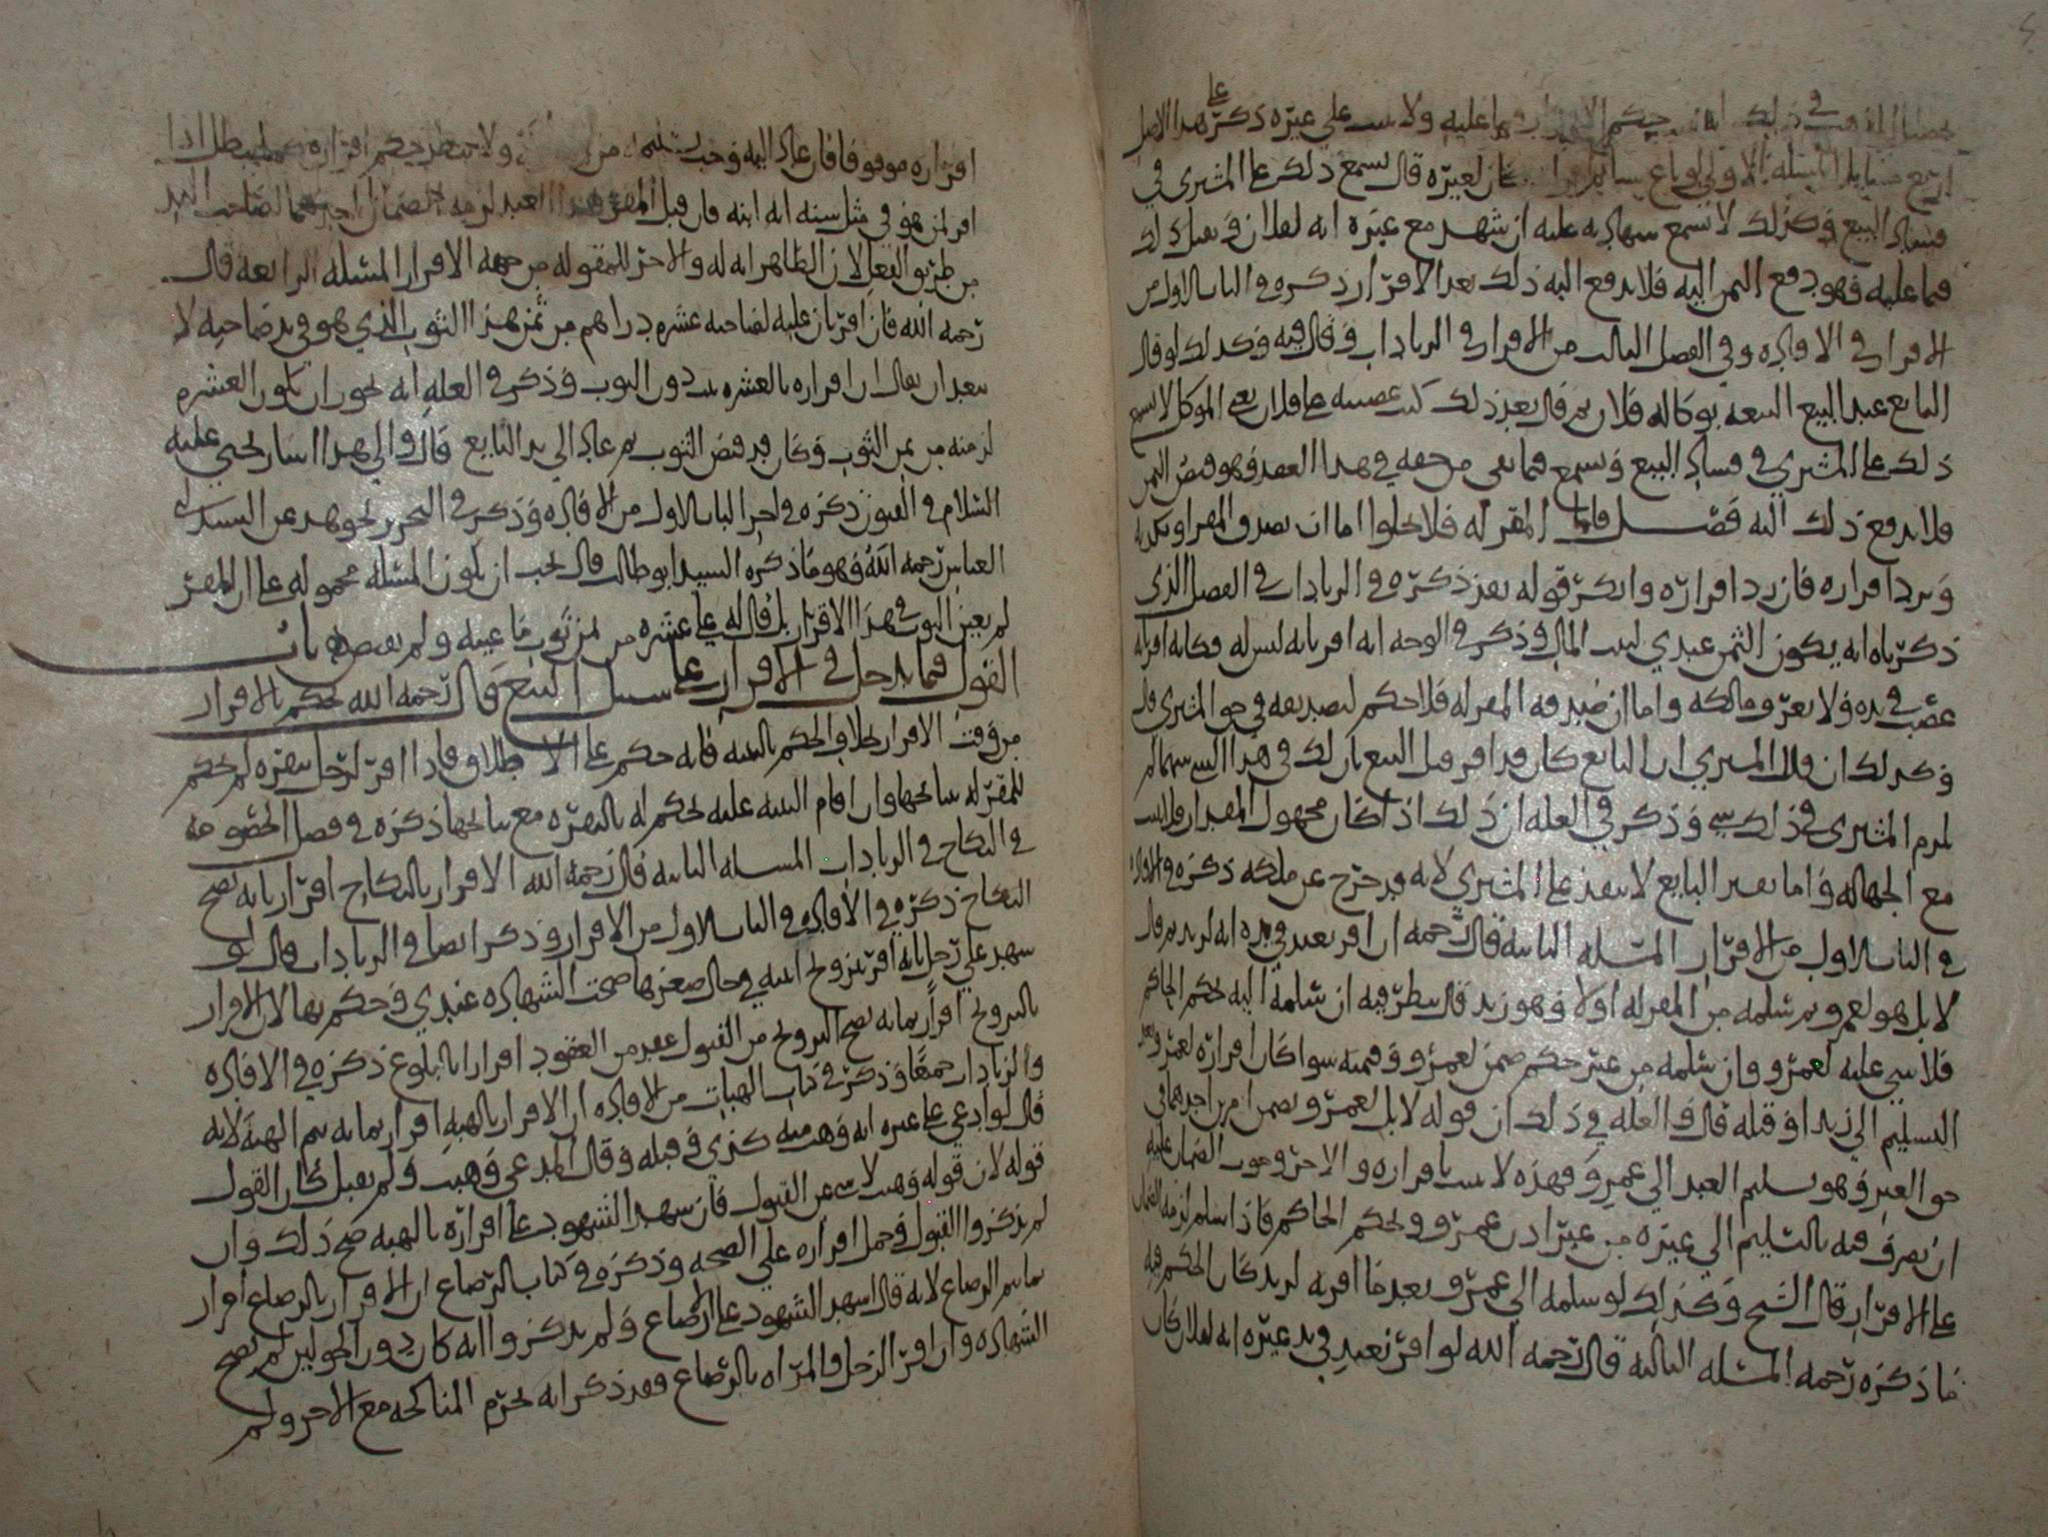 في ذلك حكم الاقرار فيما عليه ولا يثبت على غيره ذكره على هذا الاصل
المسئلة الاولى لو باع كان لغيره قال يسمع ذلك على المشتري في
فساد البيع وكذلك لا تسمع شهادته عليه ان شهد مع غيره انه لفلان ويقبل ذلك
فيما عليه وهو دفع الثمن اليه فلا يدفع اليه ذلك بعد الاقرار ذكره في الباب الاول من
الاقرار في الافادة وفي الفصل الثالث من الاقرار في الزيادات وقال فيه وكذلك لو قال
البايع عند البيع ابيعه بوكالة فلان ثم قال بعد ذلك كنت غصبته على فلان يعني الموكل لا يسمع
ذلك على المشتري في فساد البيع ويسمع فيما بقي من حقه في هذا العقد وهو قبض الثمن
فلا يدفع ذلك اليه فصل فاما المقر له فلا يخلوا اما ان يصدق المقر او يكذبه
ويرد اقراره فان رد اقراره وانكر قوله بعد ذكره في الزيادات في الفصل الذي
ذكرناه انه يكون الثمن عندي لبيت المال وذكر في الوجه انه اقر بانه ليس له فكانه اقر انه
غصب في يده ولا يعرف مالكه واما ان صدقه المقر له فلا حكم لتصديقه في حق المشتري قال
وكذلك ان قال المشتري ان البايع كان قد اقر قبل البيع بان لك في هذا البيت سهما لم
يلزم المشتري في ذلك شي وذكر في العلة ان ذلك اذا كان مجهول المقدار
مع الجهالة واما نفس البايع لا ينفذ على المشتري لانه قد خرج عن ملكه ذكره في الافادة
في الباب الاول من الاقرار المسئلة الثانية قال رحمه ان اقر بعبد في يده انه لزيد ثم قال
لا بل هو لعمرو ثم سلمه من المقر له اولا وهو زيد قال ينظر فيه ان سلمه اليه بحكم الحاكم
فلا شي عليه لعمرو وان سلمه من غير حكم ضمن لعمرو وقيمته سوا كان اقراره لعمرو بعد
التسليم الى زيد او قبله قال والعلة في ذلك ان قوله لا بل لعمرو يضمن امرين احدهما في
حق الغير وهو تسليم العبد الى عمرو فهذه لا يثبت باقراره والاخر وجوب الضمان عليه
ان تصرف فيه بالتسليم الى غيره من غير اذن عمرو وبحكم الحاكم فاذا سلم لزمه الضمان
على الاقرار قال الشيخ وكذلك لو سلمه الى عمرو بعد ما اقر به لزيد كان الحكم فيه
ما ذكره رحمه المسئلة الثالثة قال رحمه الله لو اقر بعبد في يد غيره انه لفلان كان
اقراره موقوفا فان عاد اليه وجب تسليمه من ولا يبطل حكم اقراره كما يبطل اذا
اقر لمن هو في مثل سنه انه ابنه فان قبل المقر هذا العبد لزمه الضمان احدهما لصاحب اليد
من طريق الفعل لان الظاهر انه له والاخر للمقر له من جهة الاقرار المسئلة الرابعة قال
رحمه الله فان اقر بان عليه لصاحبه عشرة دراهم من ثمن هذا الثوب الذي هو في يد صاحبه لا
يبعد ان يقال ان اقراره بالعشرة يثبت دون الثوب وذكر في العلة انه يجوز ان يكون العشرة
لزمته من ثمن الثوب وكان قد قبض الثوب ثم عاد الى يد البايع قال والى هذا اشار يحيى عليه
السلام في الفنون ذكره في اخر الباب الاول من الافادة وذكر في التحرير نحو هذا عن السيد
العباس رحمه الله وهو ما ذكره السيد ابو طالب قال يجب ان يكون المسئلة محمولة على ان المقر
لم يعين الثوب في هذا الاقرار بل قال له علي عشرة من ثمن ثوب ما عينه ولم يقبضه باب
القول فيما يدخل في الاقرار على سبيل التبع قال رحمه الله يحكم بالاقرار
من وقت الاقرار بخلاف الحكم بالبينة فانه حكم على الاطلاق فاذا اقر لرجل ببقرة لم يحكم
للمقر له بنتايجها وان اقام البينة عليه يحكم له بالبقرة مع نتايجها ذكره في فصل الخصومة
في النكاح في الزيادات المسئلة الثانية قال رحمه الله الاقرار بالنكاح اقرار بانه يصح
النكاح ذكره في الافادة في الباب الاول من الاقرار وذكر ايضا في الزيادات قال لو
شهد على رجل بانه اقر بتزويج ابنته في حال صغرها صحت الشهادة عندي وحكم بها لان الاقرار
بالتزويج اقرار بما به يصح التزويج من القبول عقد من العقود اقرارا بالبلوغ ذكره في الافادة
والزيادات جميعا وذكر في كتاب الهبات من الافادة ان الاقرار بالهبة اقرار بما به يتم الهبة لانه
قال لو ادعى على غيره انه وهب منه كذى وقبله وقال المدعى وهبت ولم يقبل كان القول
قوله لان قوله وهبت لا يبنى عن القبول فان شهد الشهود على اقراره بالهبة صح ذلك وان
لم يذكروا القبول وحمل اقراره على الصحة وذكره في كتاب الرضاع ان الاقرار بالرضاع اقرار
بما يتم الرضاع لانه قال اشهد الشهود على الرضاع ولم يذكروا انه كان دون الحولين لم تصح
الشهادة وان اقر الرجل والمراه بالرضاع فقد ذكر انه يحرم المناكحة مع الاخر ولم